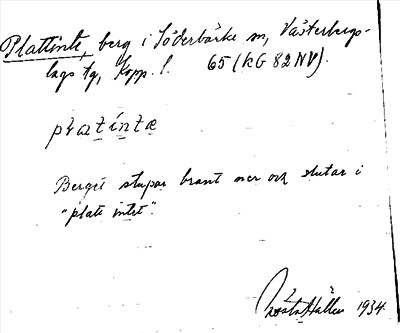 Plattinte, berg i Söderbärke sn, Västerbergs-
lags tg, Kopp. l. 65 (KG 82 NV).
platintæ
Berget stupar brant ner och slutar i
"platt intet".
Gösta Hällen 1934.